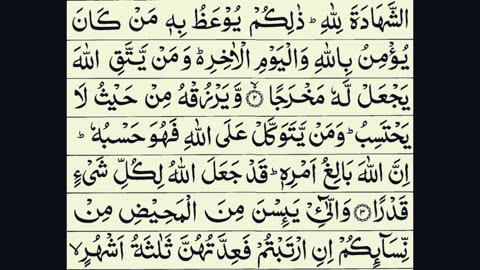 الشَّهَادَةَ لِلّٰهِ ؕ ذٰلِكُمۡ يُوۡعَظُ بِهٖ مَنۡ كَانَ
يُؤۡمِنُ بِاللّٰهِ وَالۡيَوۡمِ الۡاٰخِرِ ؕ وَمَنۡ يَّتَّقِ اللّٰهَ
يَجۡعَلۡ لَّهٗ مَخۡرَجًا ۙ‏﴿۲﴾ وَّيَرۡزُقۡهُ مِنۡ حَيۡثُ لَا
يَحۡتَسِبُ ؕ وَمَنۡ يَّتَوَكَّلۡ عَلَى اللّٰهِ فَهُوَ حَسۡبُهٗ ؕ
اِنَّ اللّٰهَ بَالِغُ اَمۡرِهٖ ؕ قَدۡ جَعَلَ اللّٰهُ لِكُلِّ شَىۡءٍ
قَدۡرًا ﴿۳﴾ وَالّٰٓـئِۡ يَٮِٕسۡنَ مِنَ الۡمَحِيۡضِ مِنۡ
نِّسَآٮِٕكُمۡ اِنِ ارۡتَبۡتُمۡ فَعِدَّتُهُنَّ ثَلٰثَةُ اَشۡهُرٍ ۙ